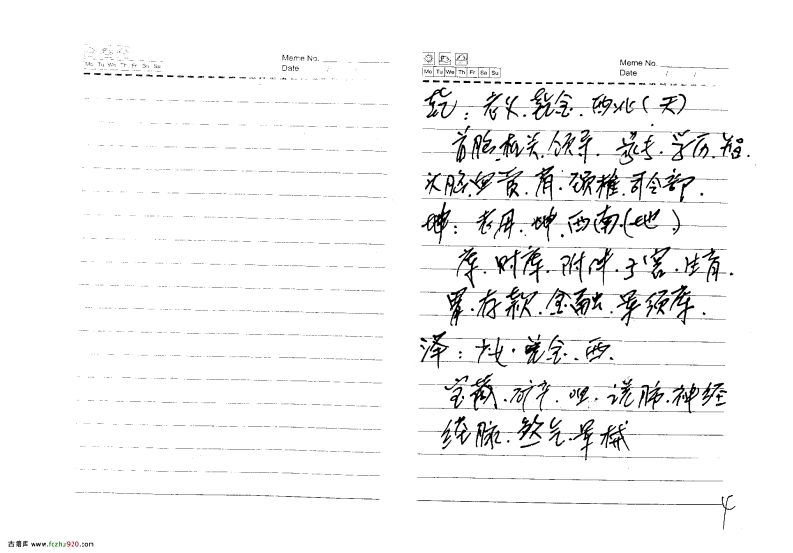 Meme No.
Date / /
Mo Tu We Th Fr Sa Su
Meme No.
Date / /
Mo Tu We Th Fr Sa Su
乾：老父.乾金.西北(天)
首脑.机关.领导.学历.
头脑.肩.颈椎.司令部.
坤：老母.坤.西南.(地)
库.财库.附件.子宫.生育.
胃.存款.金融.军须库.
泽：少女.兑金.西.
宝藏.矿产.咀.说.肺.神经
经脉.煞气.军械
4
古籍库 www.fczhu920.com